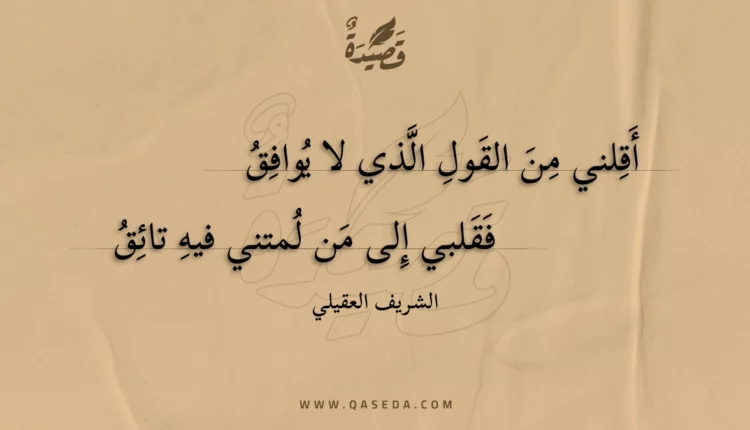 قَصِيدَةٌ
أَقِلني مِنَ القَولِ الَّذي لا يُوافِقُ
فَقَلبي إِلى مَن لُمتني فيهِ تائِقُ
الشريف العقيلي
WWW.QASEDA.COM